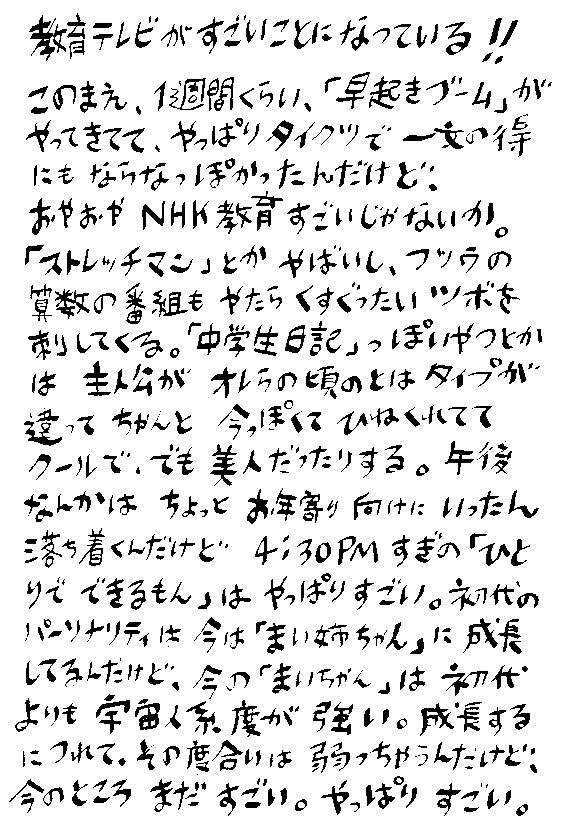 教育テレビがすごいことになっている!!
このまえ、1週間くらい、「早起きブーム」が
やってきてて、やっぱりタイクツで一文の得
にもならなっぽかったんだけど、
おやおや NHK教育すごいじゃないか。
「ストレッチマン」とか やばいし、フツウの
算数の番組も やたらくすぐったいツボを
刺してくる。「中学生日記」っぽいやつとか
は 主人公が オレらの頃のとはタイプが
違って ちゃんと 今っぽくて ひねくれてて
クールで、でも美人だったりする。午後
なんかは ちょっと お年寄り向けに いったん
落ち着くんだけど 4:30PMすぎの「ひと
りで できるもん」は やっぱりすごい。初代の
パーソナリティは 今は「まい姉ちゃん」に 成長
してるんだけど、今の「まいちゃん」は 初代
よりも 宇宙人系度が 強い。成長する
につれて、その度合いは 弱っちゃうんだけど、
今のところ まだ すごい。やっぱり すごい。